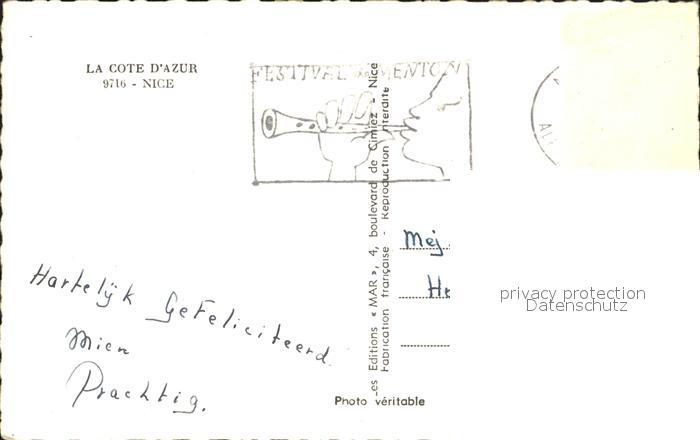 LA COTE D'AZUR
9716 - NICE
FESTIVAL DE MENTON
Les Editions « MAR », 4, boulevard de Cimiez - Nice
Fabrication française - Reproduction interdite
Mej
He
Hartelijk Gefeliciteerd
Mien
Prachtig.
Photo véritable
privacy protection
Datenschutz